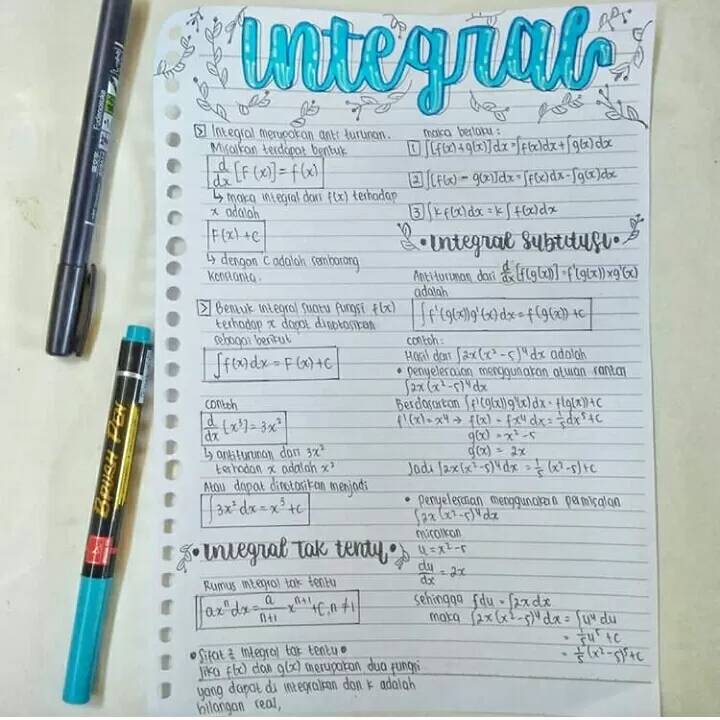 integral
Integral merupakan anti turunan.
Misalkan terdapat bentuk
d/dx [F(x)] = f(x)
↳ maka integral dari f(x) terhadap
x adalah
F(x) + C
↳ dengan C adalah sembarang
konstanta.
Bentuk integral suatu fungsi f(x)
terhadap x dapat dinotasikan
sebagai berikut
∫f(x) dx = F(x) + C
contoh
d/dx [x³] = 3x²
↳ antiturunan dari 3x²
terhadap x adalah x³
Atau dapat dinotasikan menjadi
∫3x² dx = x³ + C
• integral tak tentu •
Rumus integral tak tentu
∫axⁿ dx = a/n+1 xⁿ⁺¹ + C, n ≠ 1
• Sifat² integral tak tentu •
Jika f(x) dan g(x) merupakan dua fungsi
yang dapat di integralkan dan k adalah
bilangan real,
maka berlaku:
1 ∫[f(x) + g(x)] dx = ∫f(x) dx + ∫g(x) dx
2 ∫[f(x) - g(x)] dx = ∫f(x) dx - ∫g(x) dx
3 ∫k f(x) dx = k ∫f(x) dx
• integral subtitusi •
Antiturunan dari d/dx [f(g(x))] = f'(g(x)) x g'(x)
adalah
∫f'(g(x)) g'(x) dx = f(g(x)) + C
contoh:
Hasil dari ∫2x(x²-5)⁴ dx adalah
• penyelesaian menggunakan aturan rantai
∫2x(x²-5)⁴ dx
Berdasarkan ∫f'(g(x)) g'(x) dx = f(g(x)) + C
f'(x) = x⁴ → f(x) = ∫x⁴ dx = 1/5 x⁵ + C
g(x) = x² - 5
g(x) = 2x
Jadi ∫2x(x²-5)⁴ dx = 1/5 (x²-5) + C
• Penyelesaian menggunakan permisalan
∫2x(x²-5)⁴ dx
misalkan
u = x² - 5
du/dx = 2x
sehingga ∫du = ∫2x dx
maka ∫2x(x²-5)⁴ dx = ∫u⁴ du
= 1/5 u⁵ + C
= 1/5 (x²-5)⁵ + C
Fudenosuke
BRUSH PEN